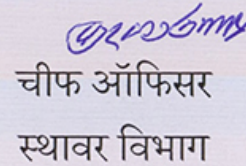 चीफ ऑफिसर
स्थावर विभाग